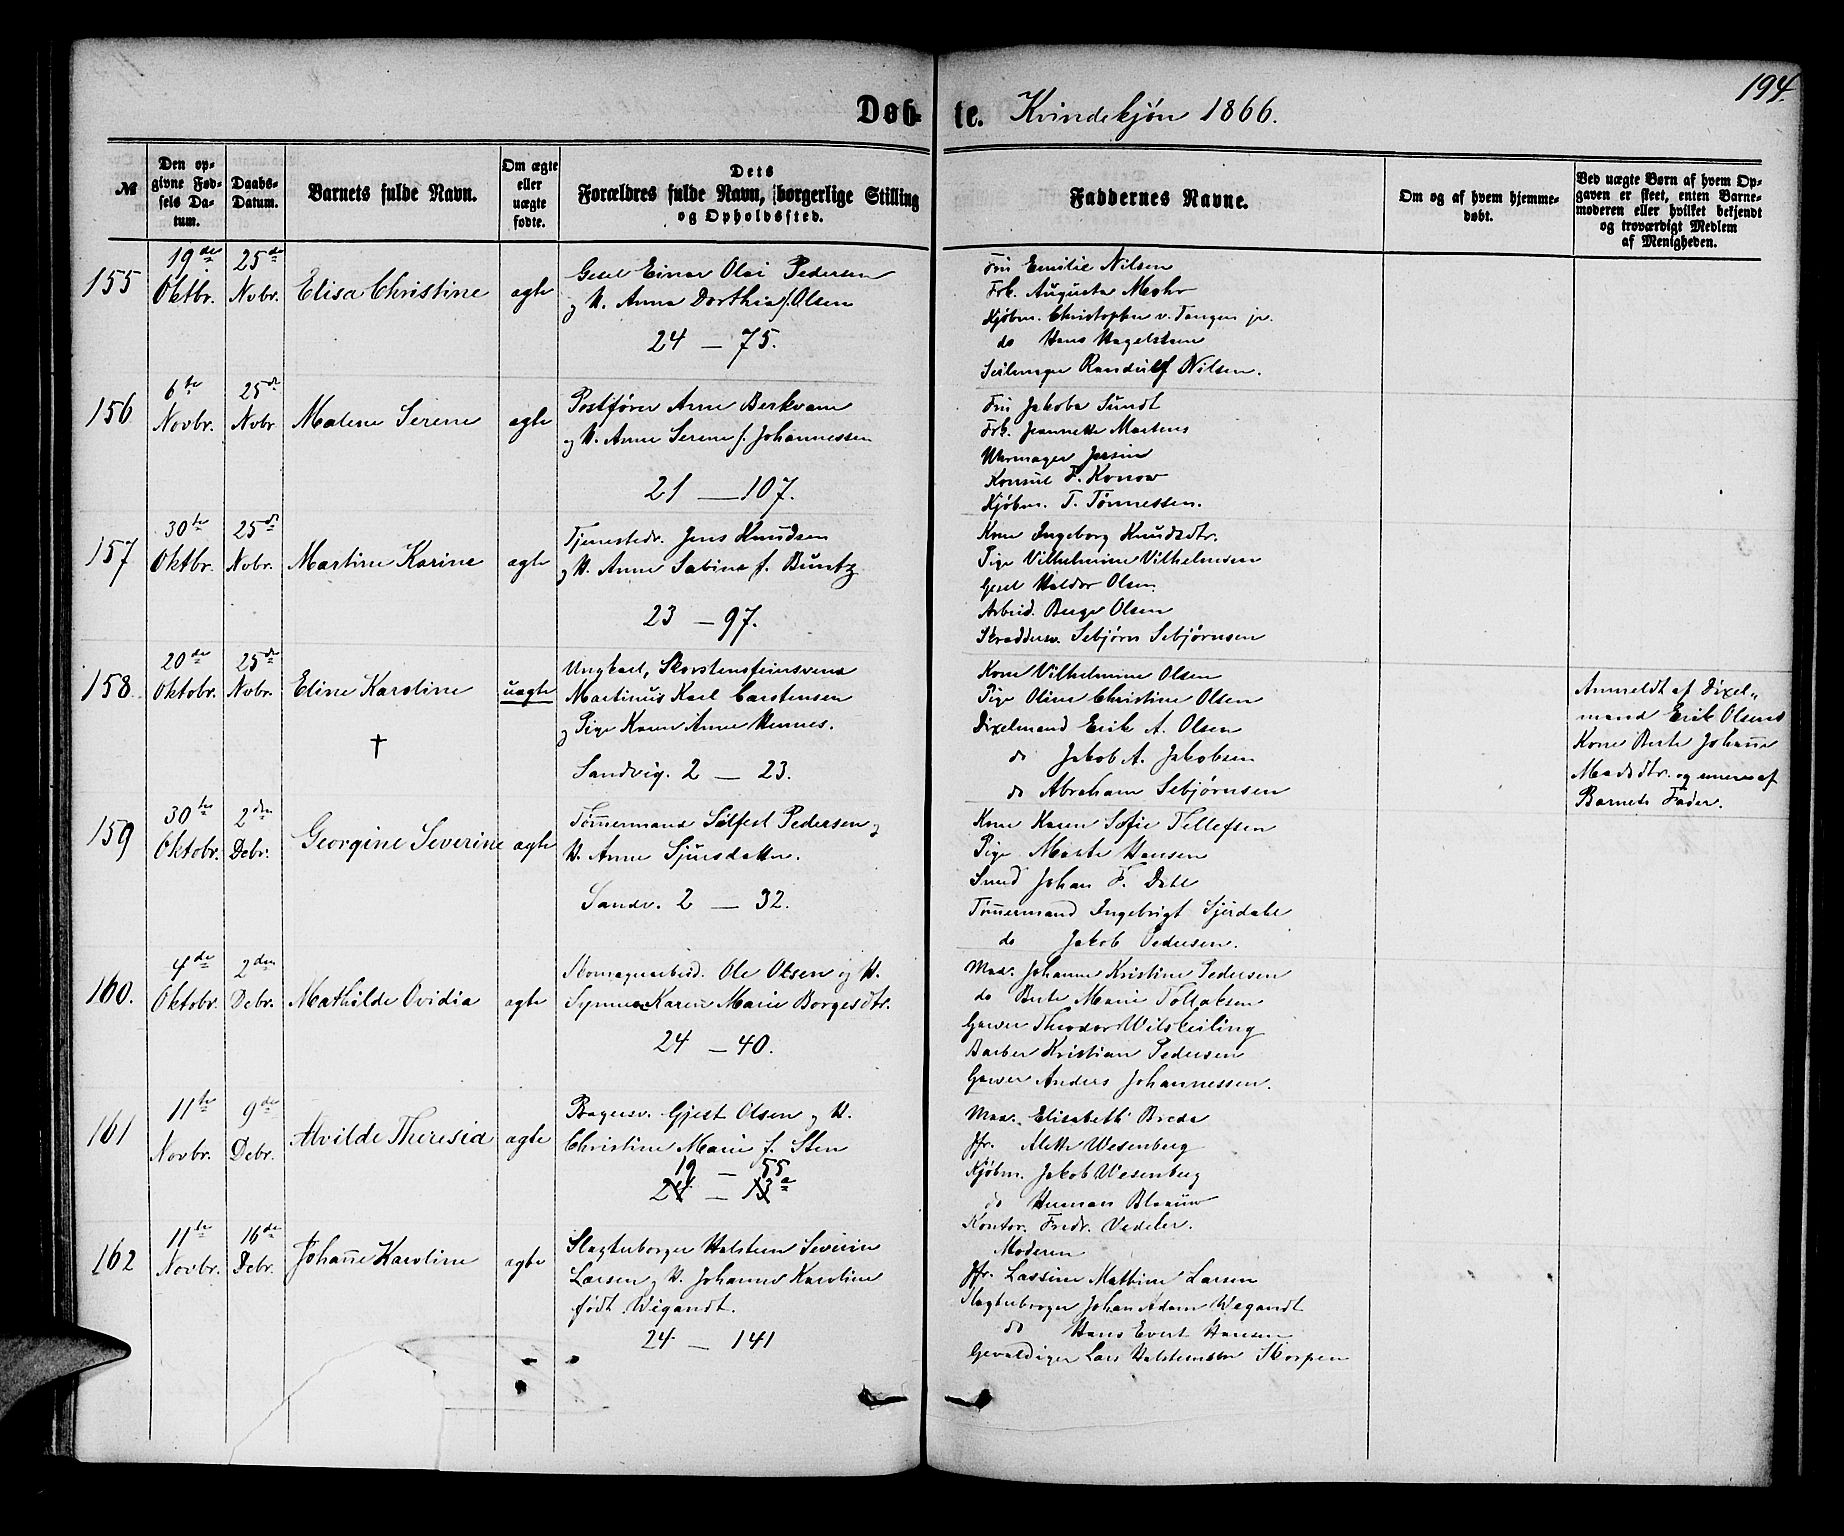 194.
Døb- te. Kvindekjøn 1866.
№
Den opgivne Fødsels Datum.
Daabs-Datum.
Barnets fulde Navn.
Om ægte eller uægte fødte.
Dets Forældres fulde Navn, borgerlige Stilling og Opholdssted.
Faddernes Navne.
Om og af hvem hjemmedøbt.
Ved uægte Børn af hvem Opgaven er skeet, enten Barnemoderen eller hvilket bekjendt og troværdigt Medlem af Menigheden.
155
19de Oktbr.
25de Novbr.
Elisa Christine
ægte
Gesel Einar Olai Pedersen
og H. Anna Dorthia f. Olsen
24 — 75.
Fru Emilie Nilsen
Frk. Augusta Mohr
Kjøbm. Christopher v. Tangen jr.
do Hans Hagelsteen
Seilmager Randulf Nilsen.
156
6te Novbr.
25de Novbr
Malene Serene
ægte
Postfører Arne Berkvam
og H. Anne Serene f. Johannessen
21 — 107.
Fru Jakoba Sundt
Frk. Jeannette Martens
Uhrmager
Konsul F. Konow
Kjøbm. T. Tønnessen.
157
30te Oktbr.
25de Novbr.
Martine Karine
ægte
Tjenestedr. Jens Knudsen
og H. Anne Sabina f. Buntz
23 — 97.
Kone Ingeborg Knudsdtr.
Pige Vilhelmine Vilhelmsen
Gesel Haldor Olsen
Arbeid. Berge Olsen
Skræddersv. Sebjørn Sebjørnsen
158.
20de Oktobr.
25de Novbr.
Eline Karoline
†
uægte
Ungkarl, Skorstensfeiersvend
Martinus Karl Carstensen
og Pige Karen Anne Hennes.
Sandvig. 2 — 23.
Kone Vilhelmine Olsen
Pige Oline Christine Olsen
Dixelmand Erik A. Olsen
do Jakob A. Jakobsen
do Abraham Sebjørnsen
Anmeldt af Dixel„
mand Erik Olsens
Kone Berte Johanne
Madsdtr. og senere af
Barnets Fader.
159
30te Oktobr.
2den Debr.
Georgine Severine
ægte
Tømmermand Sølfest Pedersen og
H. Anne Sjursdatter.
Sandv. 2 — 32.
Kone Karen Sofie Tellefsen
Pige Marte Hansen
Smed Johan F. Dahl
Tømmermand Ingebrigt Sjurdahl
do Jakob Pedersen.
160.
4de Oktobr.
2den Debr.
Mathilde Ovidia
ægte
Skomagerarbeid. Ole Olsen og H.
Synneva Karen Marie Børgesdtr.
24 — 40.
Mad. Johanne Kristine Pedersen
do Berte Marie Tollaksen
Garver Theodor Wilskeiling
Barber Kristian Pedersen
Garver Anders Johannessen.
161
11te Novbr.
9de Debr.
Alvilde Theresia
ægte
Bagersv. Gjest Olsen og H.
Christine Marie f. Sten
19 — 55
24 — 13a
Mad. Elisabeth Breda
Jfr. Alette Wesenberg
Kjøbm. Jakob Wesenberg
do Herman Blaauw
Kontor. Fredr. Vedeler.
162
11te Novbr.
16de Debr.
Johanne Karoline
ægte
Slagterborger Halsten Severin
Larsen og H. Johanne Karoline
født Wigandt.
24 — 141
Moderen
Jfr. Lassine Mathine Larsen
Slagterborger Johan Adam Wegandt
do Hans Evert Hansen
Gevaldiger Lars Halstensen Skorpen